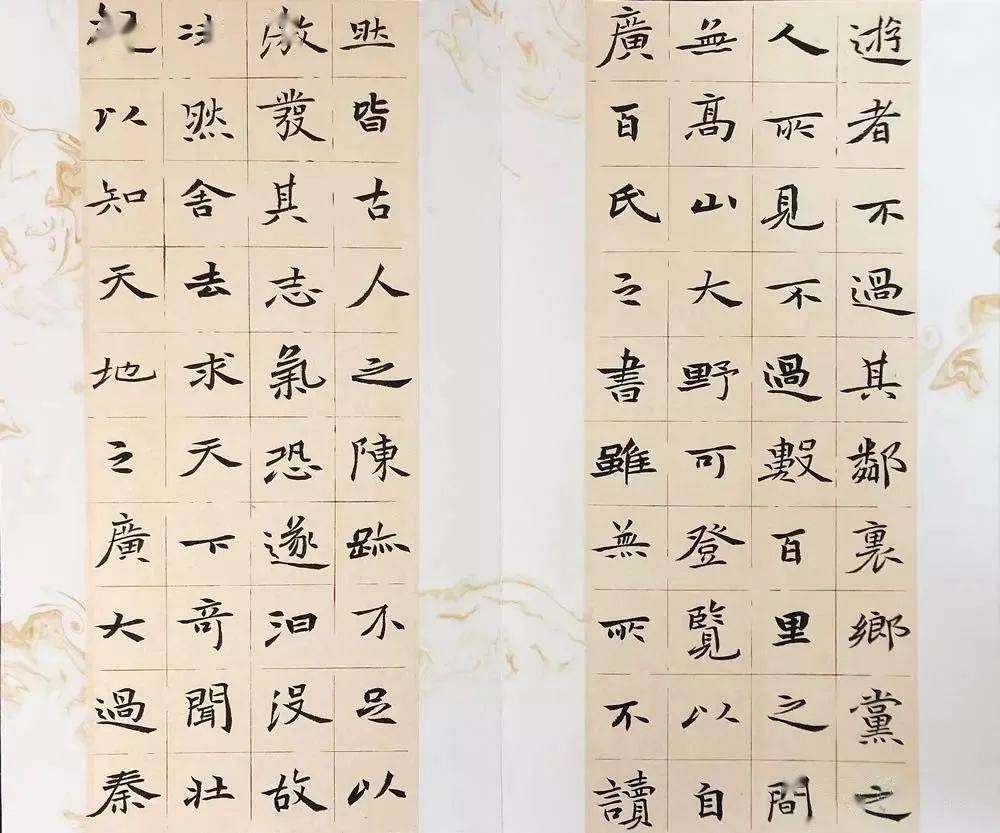 遊者不過其鄰裏鄉黨之
人所見不過數百里之間
無高山大野可登覽以自
廣百氏之書雖無所不讀
然皆古人之陳跡不足以
激發其志氣恐遂汩没故
决然舍去求天下奇聞壯
觀以知天地之廣大過秦